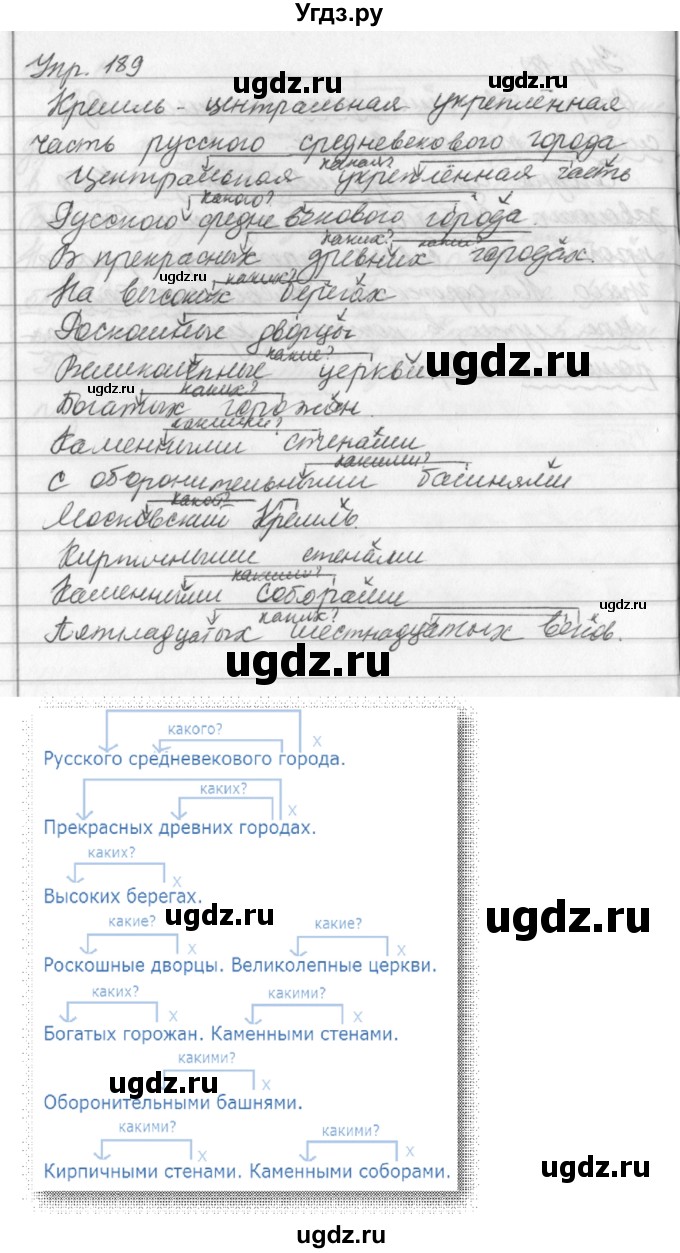 Угдз.ру
Упр. 189
ugdz.ru ugdz.ru
Кремль - центральная укрепленная
часть русского средневекового города
какая?
Центральная укреплённая часть
какого?
Русского средневекового города.
каких? каких?
В прекрасных древних городах.
ugdz.ru каких?
На высоких берегах
Роскошные дворцы
какие?
Великолепные церкви ugdz.ru
ugdz.ru каких?
Богатых горожан.
какими?
Каменными стенами
какими?
с оборонительными башнями
какой?
Московский Кремль.
Кирпичными стенами
какими?
Каменными соборами
ugdz.ru
каких?
Пятнадцатых шестнадцатых веков.
ugdz.ru
какого? х
Русского средневекового города.
каких? х
Прекрасных древних городах.
каких? х
Высоких берегах.
ugdz.ru ugdz.ru
какие? х какие? х
Роскошные дворцы. Великолепные церкви.
каких? х какими? х
Богатых горожан. Каменными стенами.
какими? х
ugdz.ru
Оборонительными башнями.
какими? х какими? х
Кирпичными стенами. Каменными соборами.
ugdz.ru
ugdz.ru